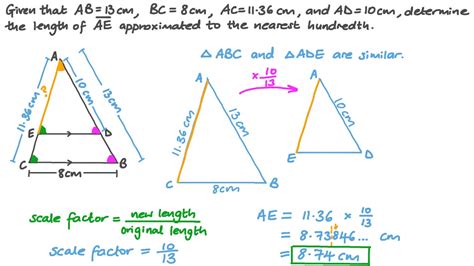 Given that AB=13cm, BC=8cm, AC=11.36cm, and AD=10cm, determine
the length of AE approximated to the nearest hundredth.
△ABC and △ADE are similar.
× 10/13
A
11.36cm
?
10cm
13cm
E
D
C
B
8cm
A
11.36cm
13cm
C
B
8cm
A
10cm
E
D
scale factor = new length / original length
scale factor = 10/13
AE = 11.36 × 10/13
= 8.73846... cm
= 8.74 cm